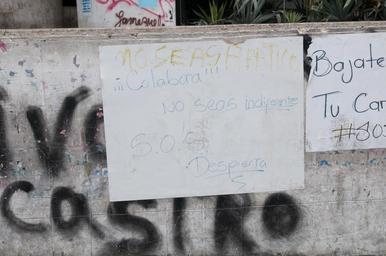 NO SEAS APATICO
¡¡¡Colabora!!!
No seas indiferente
S.O.S
Despierta
Bajate
Tu Car
#SOS
CASTRO